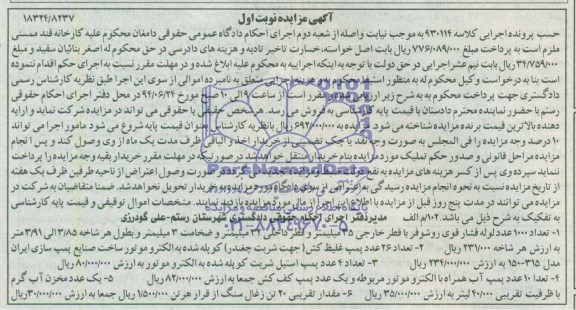 ۱۸۳۲۴/۸۲۳۷
آگهی مزایده نوبت اول
حسب پرونده اجرایی کلاسه ۹۳۰۱۱۴ به موجب نیابت واصله از شعبه دوم اجرای احکام دادگاه عمومی حقوقی دامغان محکوم علیه کارخانه قند ممسنی
ملزم است به پرداخت مبلغ ۷۷۶/۰۸۹/۰۰۰ ریال بابت اصل خواسته، خسارت تاخیر تادیه و هزینه های دادرسی در حق محکوم له اصغر بنائیان سفید و مبلغ
۳۴/۷۵۹/۰۰۰ ریال بابت نیم عشر اجرایی در حق دولت با توجه به اینکه اجراییه به محکوم علیه ابلاغ شده و در مهلت مقرر نسبت به اجرای حکم اقدام ننموده
است بنا به درخواست وکیل محکوم له به منظور استیفا محکوم به و هزینه اجرایی متعلق به نامبرده اموالی از سوی این اجرا طبق نظریه کارشناس رسمی
دادگستری جهت پرداخت محکوم به به شرح زیر ارزیابی شده و مقرر است از ساعت ۹ الی ۱۰ صبح مورخ ۹۴/۰۶/۲۴ در محل دفتر اجرای احکام حقوقی
رستم با حضور نماینده محترم دادستان با قیمت پایه کارشناسی به فروش می رسد. هر شخص حقیقی یا حقوقی می تواند در مزایده شرکت نماید و ارایه
دهنده بالاترین قیمت برنده مزایده شناخته می شود. مزایده به ۶۹۲/۰۰۰/۰۰۰ ریال با نظریه کارشناس بعنوان قیمت پایه شروع می شود مامور اجرا می تواند
۱۰ درصد وجه مزایده را فی المجلس به صورت وجه نقد یا چک تضمینی از خریدار اخذ و الباقی ظرف مدت یک ماه از وی وصول کند و پس از انجام
مزایده مراحل قانونی و صدور حکم تملیک مورد مزایده بنام خریدار منتقل خواهد شد در صورتیکه در مهلت مقرر خریدار بقیه وجه مزایده را پرداخت
ننماید سپرده وی پس از کسر هزینه های مزایده به نفع
از تاریخ مزایده نسبت به نحوه انجام مزایده رسیدگی به اعتراض از سوی دادگاه و مورد مزایده به خریدار تحویل نخواهد شد. ضمنا متقاضیان به شرکت در
مزایده می توانند در مدت پنج روز قبل از مزایده با اطلاع این اجرا از مال مورد مزایده بازدید نمایند. مشخصات اموال توقیفی و قیمت پایه کارشناسی
به تفکیک به شرح ذیل می باشد. ۱۰۲/م الف
مدیر دفتر اجرای احکام حقوقی دادگستری شهرستان رستم-علی گودرزی
۱- تعداد ۱۰۰۰ عدد لوله فشار قوی روشوفر با قطر خارجی ۳۵ میلیمتر و قطر داخلی میلیمتر و ضخامت ۳ میلیمتر و بطول هر شاخه ۳/۸۵ الی ۳/۹۱ متر
به ارزش هر شاخه ۲۳۱/۰۰۰ ریال ۲- تعداد ۲۶ عدد پمپ غلیظ کش (جهت شربت چغندر) کوپله شده به الکترو موتور ساخت صنایع پمپ سازی ایران
مدل ۳۱۵-۱۵۰ به ارزش ۲۳۴/۰۰۰/۰۰۰ ریال ۳- تعداد ۴ عدد پمپ استیل شربت کوپله شده به الکترو موتور به ارزش ۸۰/۰۰۰/۰۰۰ ریال
۴- تعدا ۱۰ عدد پمپ آب همراه با الکترو موتور مربوطه و یک عدد پمپ کف کش جمعا به ارزش ۸۲/۰۰۰/۰۰۰ ریال ۵- یک عدد مخزن آب گرم
با ظرفیت تقریبی ۴۰/۰۰۰ لیتر به ارزش ۳۵/۰۰۰/۰۰۰ ریال ۶- مقدار تقریبی ۲۰ تن زغال سنگ از قرار هر تن ۱/۵۰۰/۰۰۰ ریال جمعا به ارزش ۳۰/۰۰۰/۰۰۰ ریال
پایگاه اطلاع رسانی مناقصه و مزایده
۰۲۱-۸۸۳۴۹۶۷۰-۵